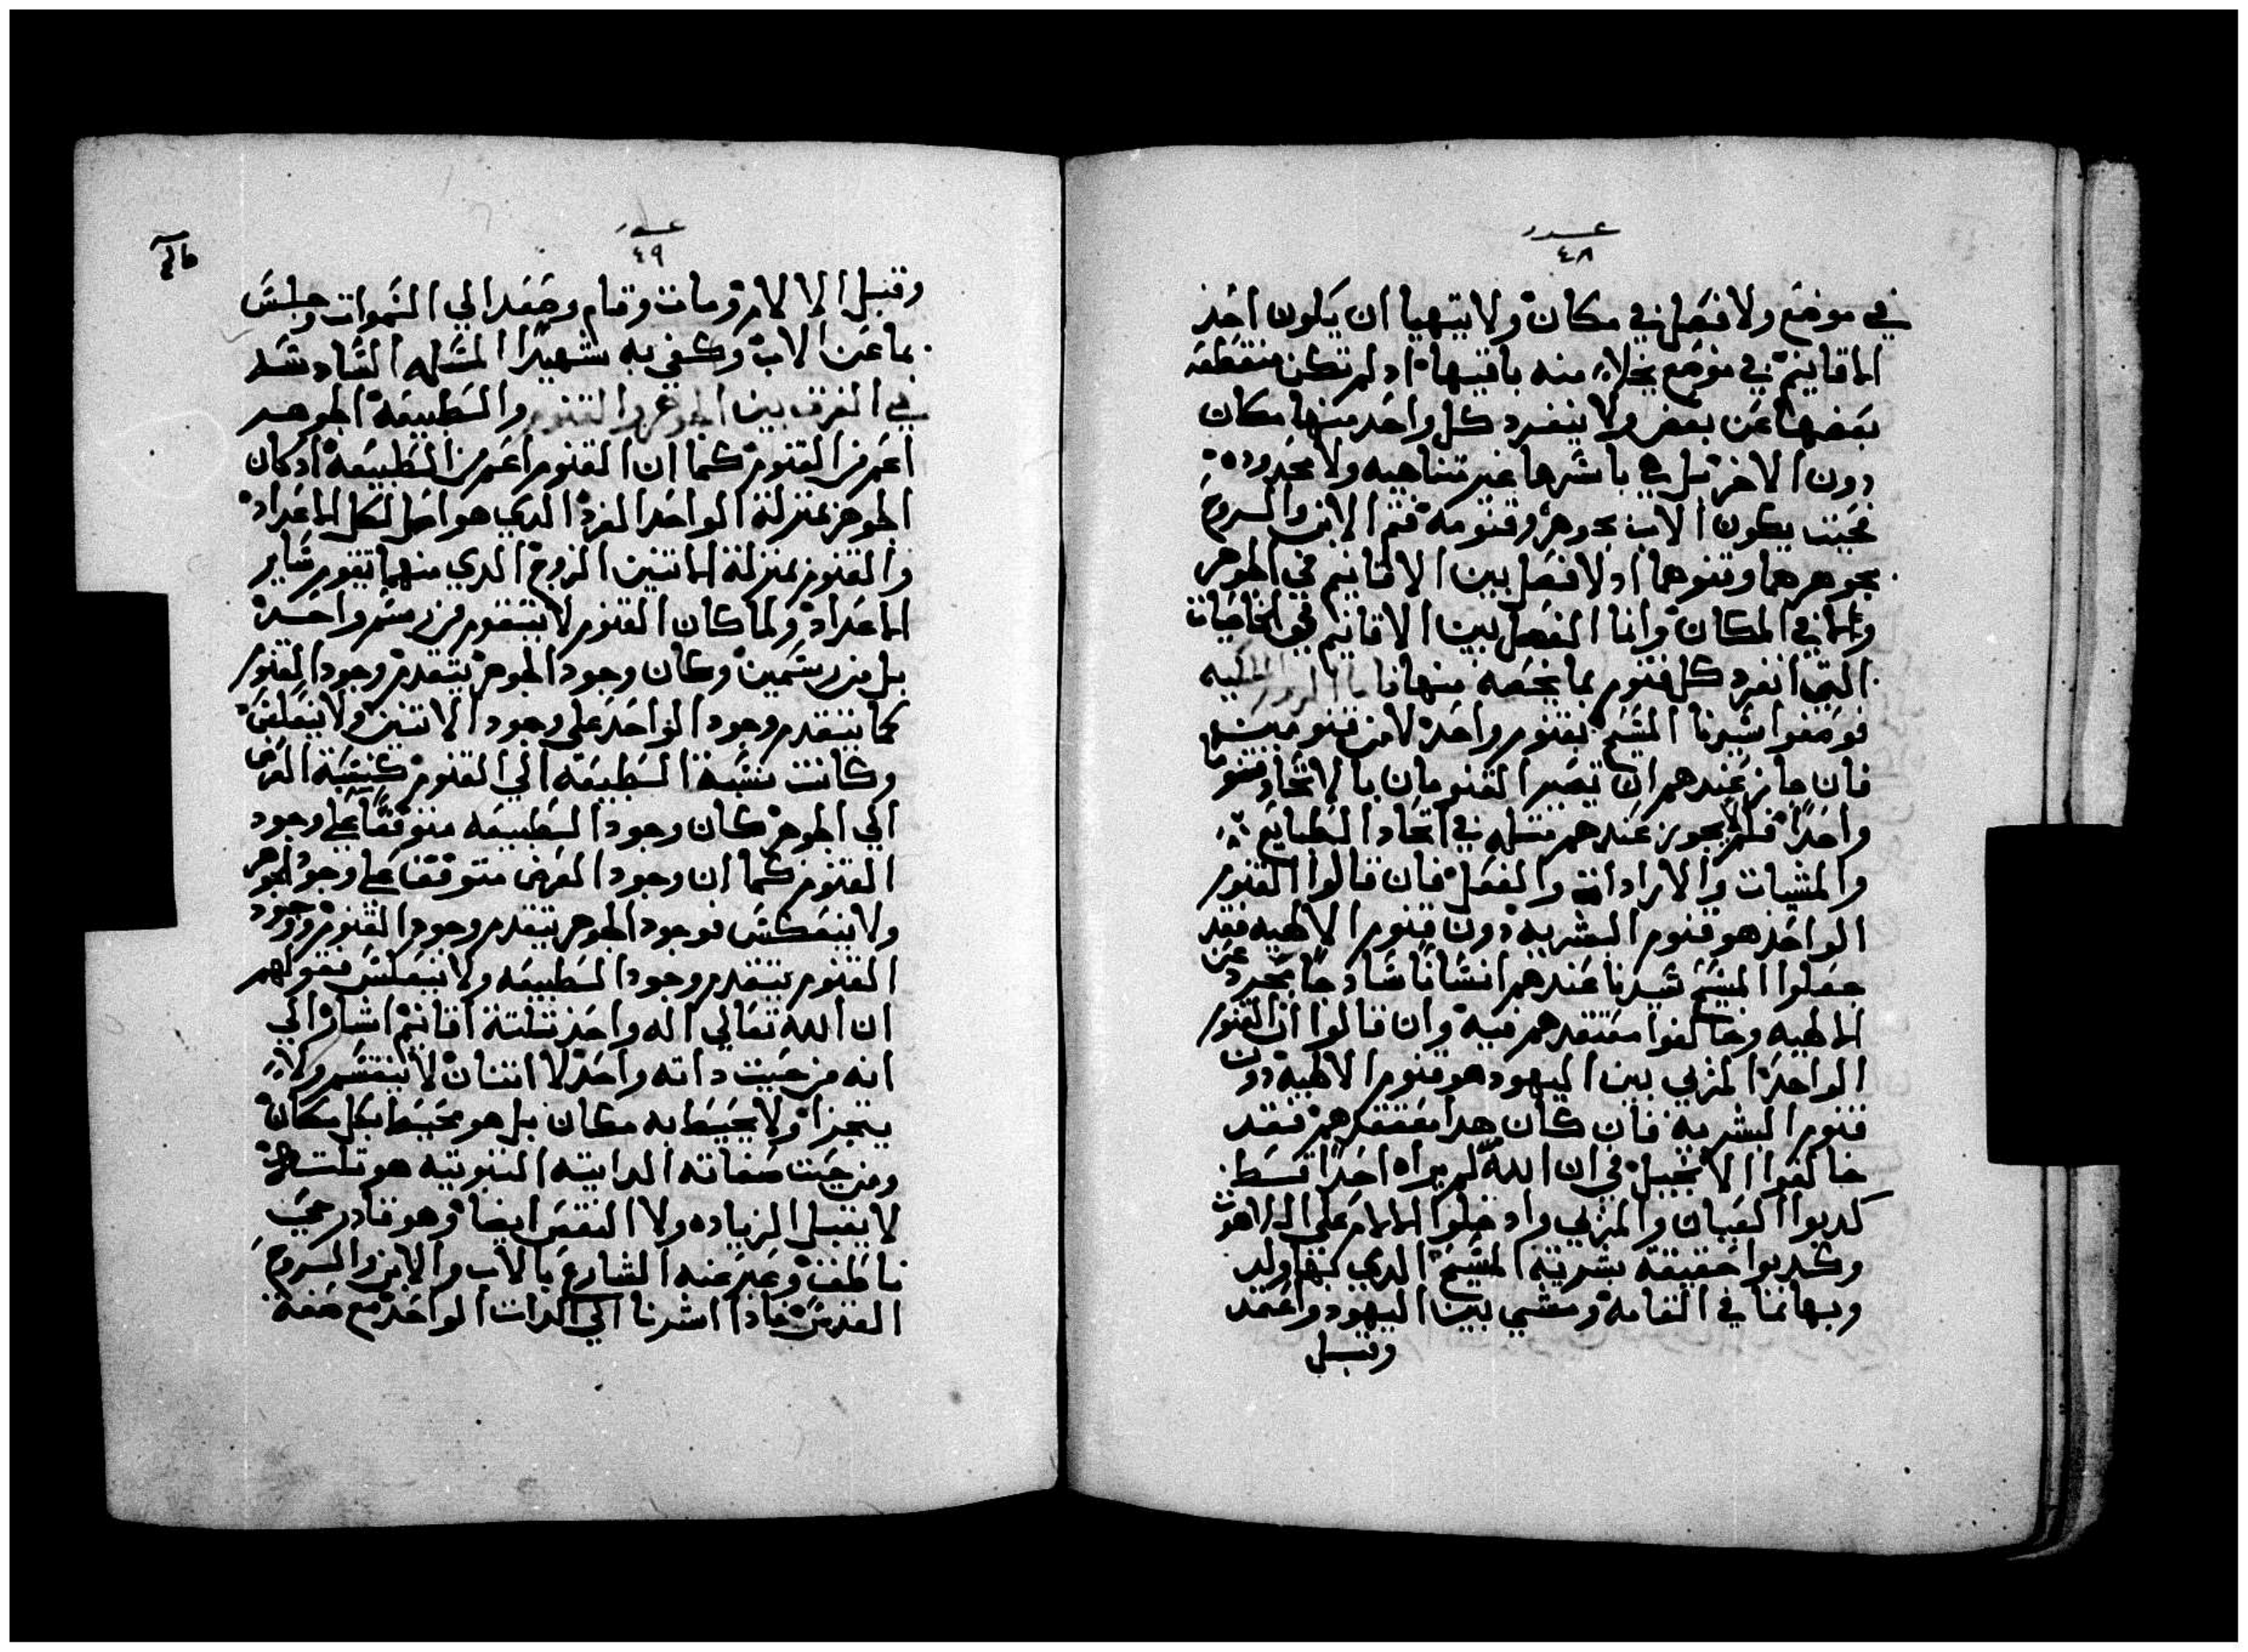 عدد
٤٨
في موضع ولا فصل في مكان ولا يتهيا ان يكون احد
الاقانيم في موضع يخلا منه باقيها اد لم تكن منقطعه
بعضها عن بعض ولا ينفرد كل واحد منها مكان
دون الاخر بل هي باسرها غير متناهيه ولا محدوده
فحيت يكون الاب بجوهره وقنومه فتم الابن والروح
بجوهرهما وقنوهما اد لا فصل بين الاقانيم في الجوهر
ولا في المكان وانما الفصل بين الاقانيم في الخاصيات
التي انفرد كل قنوم بما يخصه منها
فوصفوا سيدنا المسيح بقنوم واحد لا من قنومين
فان جاز عندهم ان تصير القنومان بالاتحاد قنومًا
واحدًا فلم لا يجوز عندهم متله في اتحاد الطبايع
والمشيات والارادات والفعل فان قالوا القنوم
الواحد هو قنوم البشريه دون قنوم الالهيه فقد
جعلوا المسيح سيدنا عندهم انسانًا سادجًا مجرد عن
الالهيه وخالفوا معتقدهم فيه وان قالوا ان القنوم
الواحد المزيي بين اليهود هو قنوم الالهية دون
قنوم البشريه فان كان هدا معتقدهم فقد
خالفوا الانجيل في ان الله لم يراه احدًا قسط
كدبوا العيان والمزيي وادخلوا الالام على اللاهوت
وكدبوا حقيقة بشرية المسيح الدي بها ولد
وبها نما في القامة ومشي بين اليهود واعتمد
وقبل
عدد
٤٩
وقبل الالام ومات وقام وصعد الي السموات وجلس
بما عن الاب وكفي به شهيدًا المسله السادسه
في الفرق بين الجوهر والقنوم والطبيعة الجوهر
اعم من القنوم كما ان القنوم اعم من الطبيعة اد كان
الجوهر بمنزلة الواحد الفرد الدي هو اصل لكل الاعداد
والقنوم بمنزلة الاتنين الزوج الدي منهما تقوم ساير
الاعداد ولما كان القنوم لا يتقوم من رسم واحد
بل من رسمين وكان وجود الجوهر يتقدم وجود القنوم
كما يتقدم وجود الواحد على وجود الاتنين ولا ينعكس
وكانت نسبة الطبيعة الي القنوم كنسبة العرض
الي الجوهر كان وجود الطبيعه متوقفًا على وجود
القنوم كما ان وجود العرض متوقفا على وجود الجوهر
ولا ينعكس فوجود الجوهر يتقدم وجود القنوم ووجود
القنوم يتقدم وجود الطبيعه ولا ينعكس فقولهم
ان الله تعالي اله واحد تلتة اقانيم اشارة الي
انه من حيت داته واحد لا اتنان لا ينقسم ولا
يتجزا ولا يحيط به مكان بل هو محيط بكل مكان
ومن حيت صفاته الداتيه التبوتيه هو تلته
لا يقبل الزياده ولا النقص ايضا وهو قادر حي
ناطق وعبر عنه الشارع بالاب والابن والروح
القدس فادا اشرنا الي الدات الواحد مع صفة